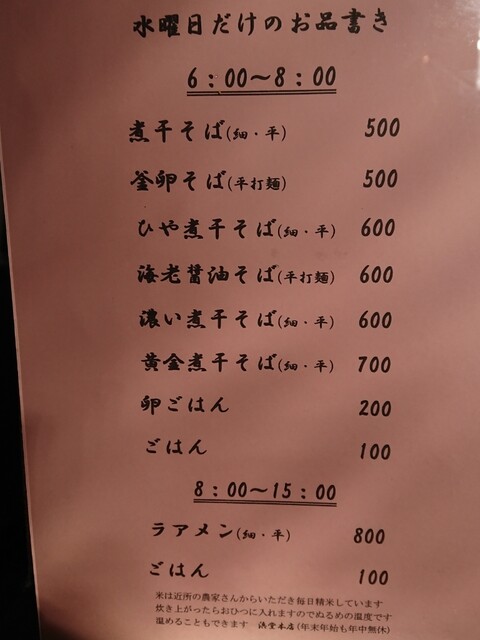 水曜日だけのお品書き
6:00〜8:00
煮干そば(細・平) 500
釜卵そば(平打麺) 500
ひや煮干そば(細・平) 600
海老醤油そば(平打麺) 600
濃い煮干そば(細・平) 600
黄金煮干そば(細・平) 700
卵ごはん 200
ごはん 100
8:00〜15:00
ラアメン(細・平) 800
ごはん 100
米は近所の農家さんからいただき毎日精米しています
炊き上がったらおひつに入れますのでぬるめの温度です
温めることもできます 浜堂本店(年末年始も年中無休)